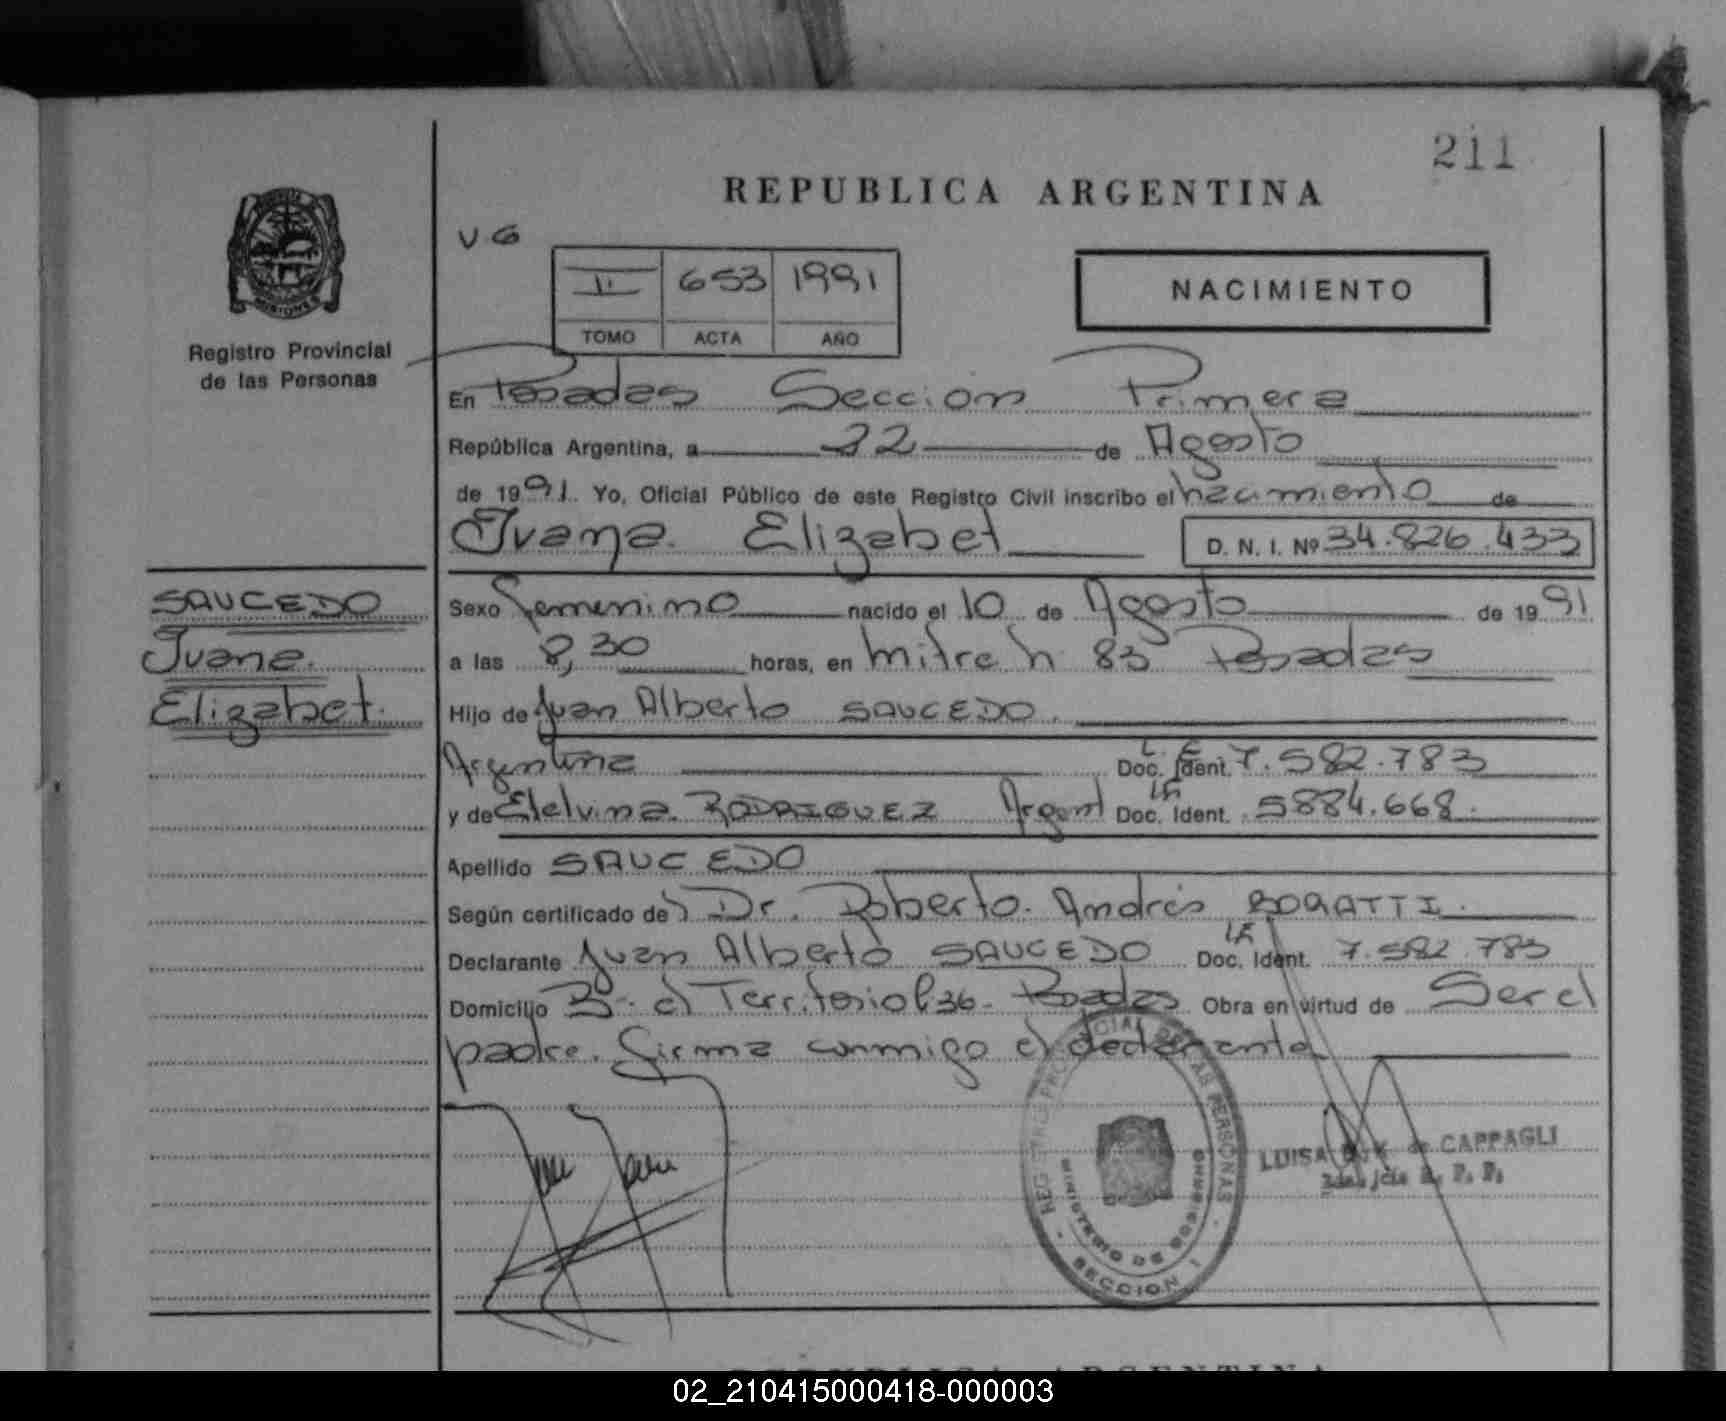 211
REPUBLICA ARGENTINA
V.G
II 653 1991
TOMO ACTA AÑO
NACIMIENTO
MISIONES
Registro Provincial
de las Personas
En Posadas Seccion Primera
República Argentina, a 22 de Agosto
de 1991. Yo, Oficial Público de este Registro Civil inscribo el nacimiento de
Ivana Elizabet D. N. I. Nº 34.826.433
SAUCEDO
Ivana
Elizabet.
Sexo femenino nacido el 10 de Agosto de 1991
a las 8,30 horas, en Mitre N 83 Posadas
Hijo de Juan Alberto SAUCEDO.
Argentina Doc. Ident. L.E 7.582.783
y de Etelvina RODRIGUEZ Argent Doc. Ident. 5884.668.
Apellido SAUCEDO
Según certificado de Dr. Roberto Andrés BOGATTI.
Declarante Juan Alberto SAUCEDO Doc. Ident. LE 7.582.783
Domicilio B- el Territorio 36- Posadas Obra en virtud de Ser el
padre. Firma conmigo el declarante
REGISTRO PROVINCIAL DE LAS PERSONAS
MINISTERIO DE GOBIERNO
SECCION 1
LUISA de CAPPAGLI
REPUBLICA ARGENTINA
02_210415000418-000003